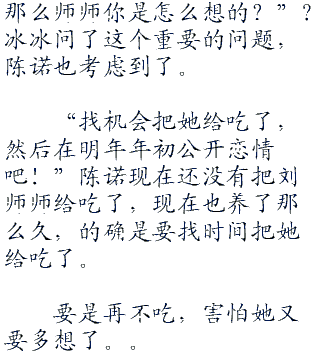 那么师师你是怎么想的？”？
冰冰问了这个重要的问题，
陈诺也考虑到了。
“找机会把她给吃了，
然后在明年年初公开恋情
吧！”陈诺现在还没有把刘
师师给吃了，现在也养了那
么久，的确是要找时间把她
给吃了。
要是再不吃，害怕她又
要多想了。。